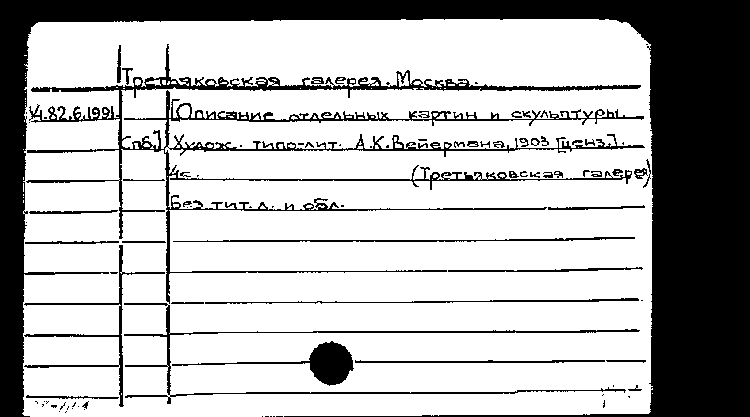 Третьяковская галерея. Москва.
V4.82.6.1991 [Описание отдельных картин и скульптуры.
Спб.] Худож. типо-лит. А.К.Вейермана, 1903 [ценз.].
4с. (Третьяковская галерея)
Без тит.л. и обл.